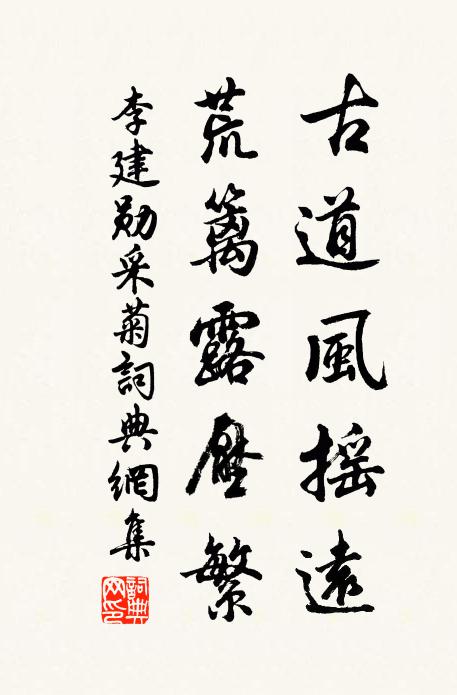 古道風摇遠
荒篱露壓繁
李建勋采菊詞典網集
詞典网印